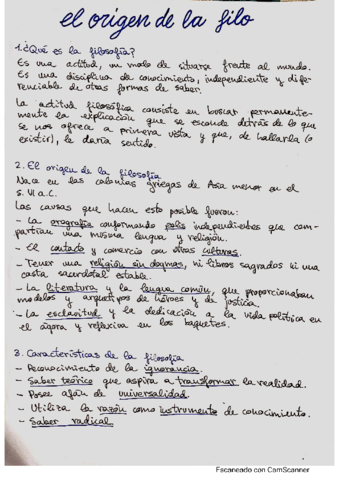 el origen de la filo
1. ¿Qué es la filosofía?
Es una actitud, un modo de situarse frente al mundo.
Es una disciplina de conocimiento, independiente y dife-
renciable de otras formas de saber.
La actitud filosófica consiste en buscar permanente-
mente la explicación que se esconde detrás de lo que
se nos ofrece a primera vista y que, de hallarla (o
existir), le daría sentido.
2. El origen de la filosofía
Nace en las colonias griegas de Asia menor en el
S. VI a.C.
Las causas que hacen esto posible fueron:
- La orografía conformando polis independientes que com-
partían una misma lengua y religión.
- El contacto y comercio con otras culturas.
- Tener una religión sin dogmas, ni libros sagrados ni una
casta sacerdotal estable.
- La literatura y la lengua común, que proporcionaban
modelos y arquetipos de héroes y de justicia.
- La esclavitud y la dedicación a la vida política en
el ágora y reflexiva en los banquetes.
3. Características de la filosofía
- Reconocimiento de la ignorancia.
- Saber teórico que aspira a transformar la realidad.
- Posee afán de universalidad.
- Utiliza la razón como instrumento de conocimiento.
- Saber radical
Escaneado con CamScanner